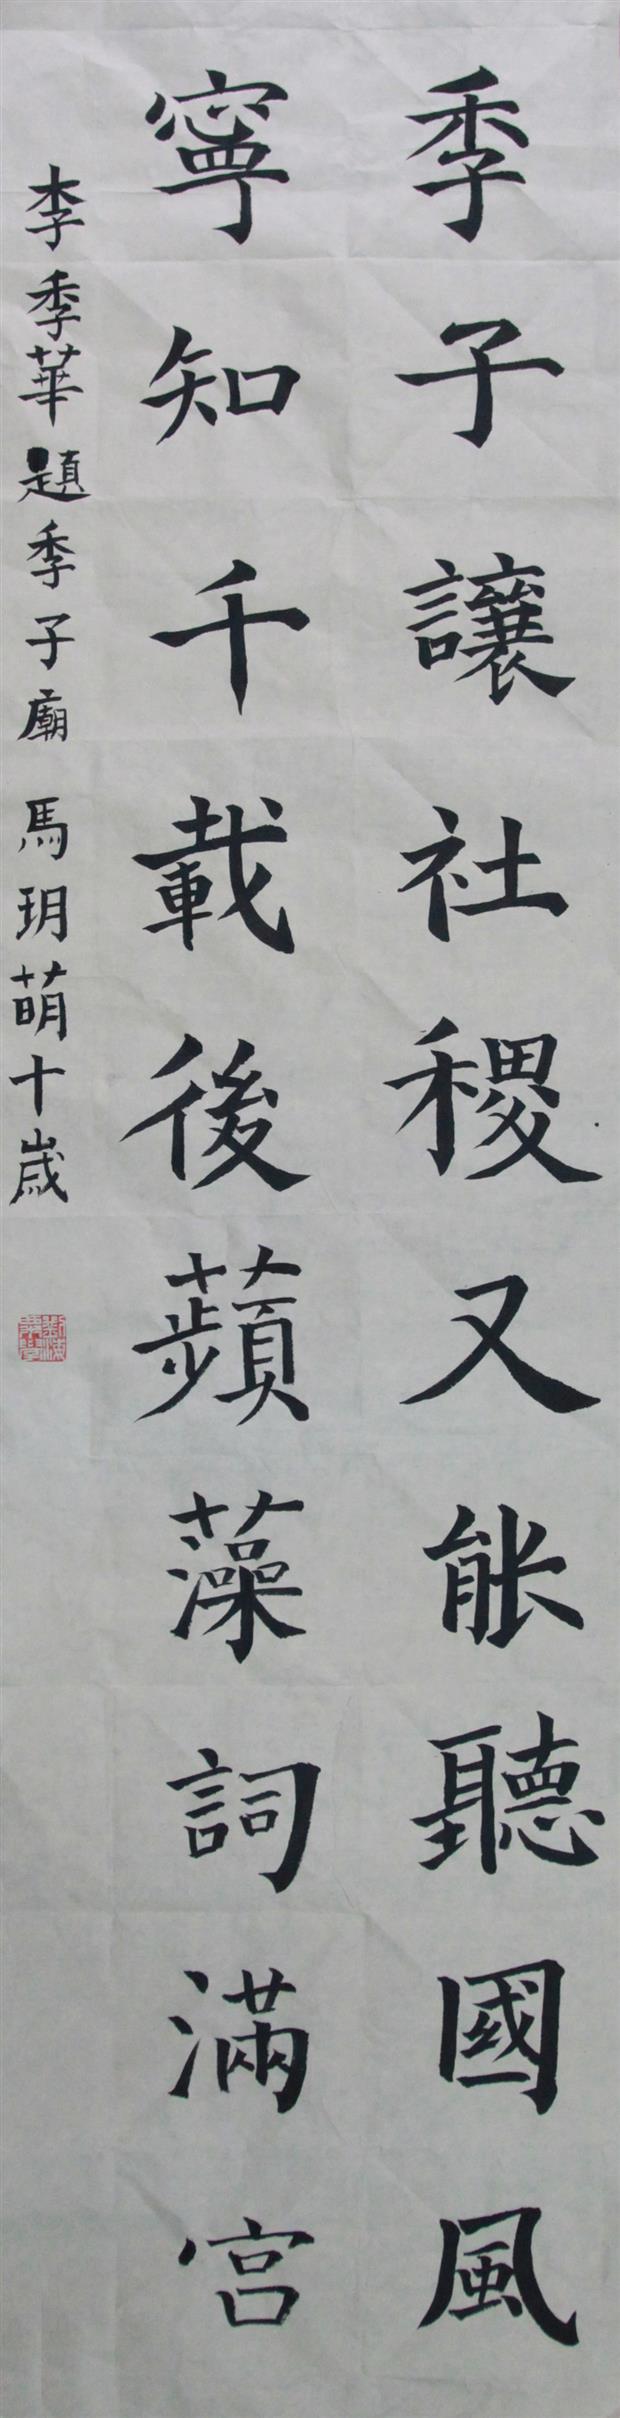 季子讓社稷又能聽國風
寧知千載後蘋藻詞滿宮
李季華題季子廟 馬玥萌十歲